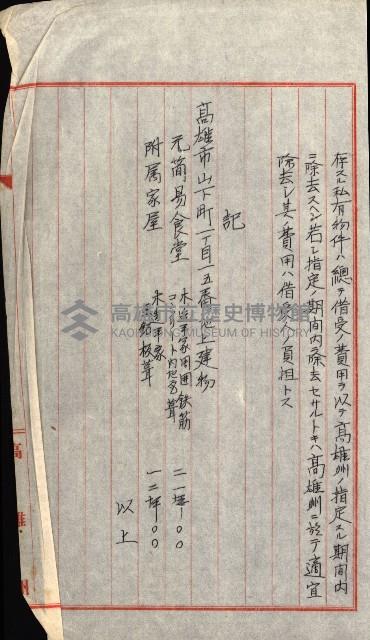 存スル私有物件ハ總テ借受人費用ヲ以テ高雄州ノ指定スル期間内
ニ除去スヘシ若シ指定ノ期間内ニ除去セサルトキハ高雄州ニ於テ適宜
除去シ其ノ費用ハ借受人ノ負担トス
記
高雄市山下町一丁目一五番地上建物
元簡易食堂 木造平家周囲鉄筋
コンクリート 葺 二一坪一〇〇
附属家屋 木造平家
亜鉛板葺 一二坪一〇〇
以上
高雄州
高雄市立歷史博物館
KAOHSIUNG MUSEUM OF HISTORY